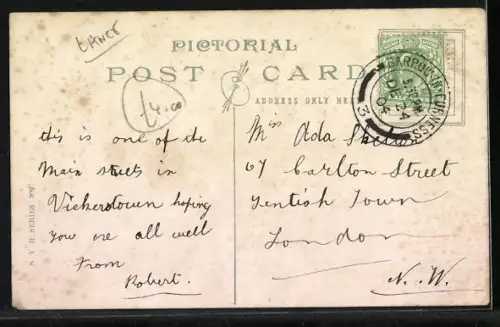 PICTORIAL
POST CARD
ADDRESS ONLY HERE
BARROW-IN-FURNESS
DE 24
04
3
4.00
this is one of the
Main streets in
Vickerstown hoping
you are all well
From
Robert.
Miss Ada
67 Carlton Street
Kentish Town
London
N.W.